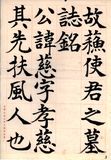 故蘓使君之墓
誌銘
公諱慈字孝慈
其先扶風人也